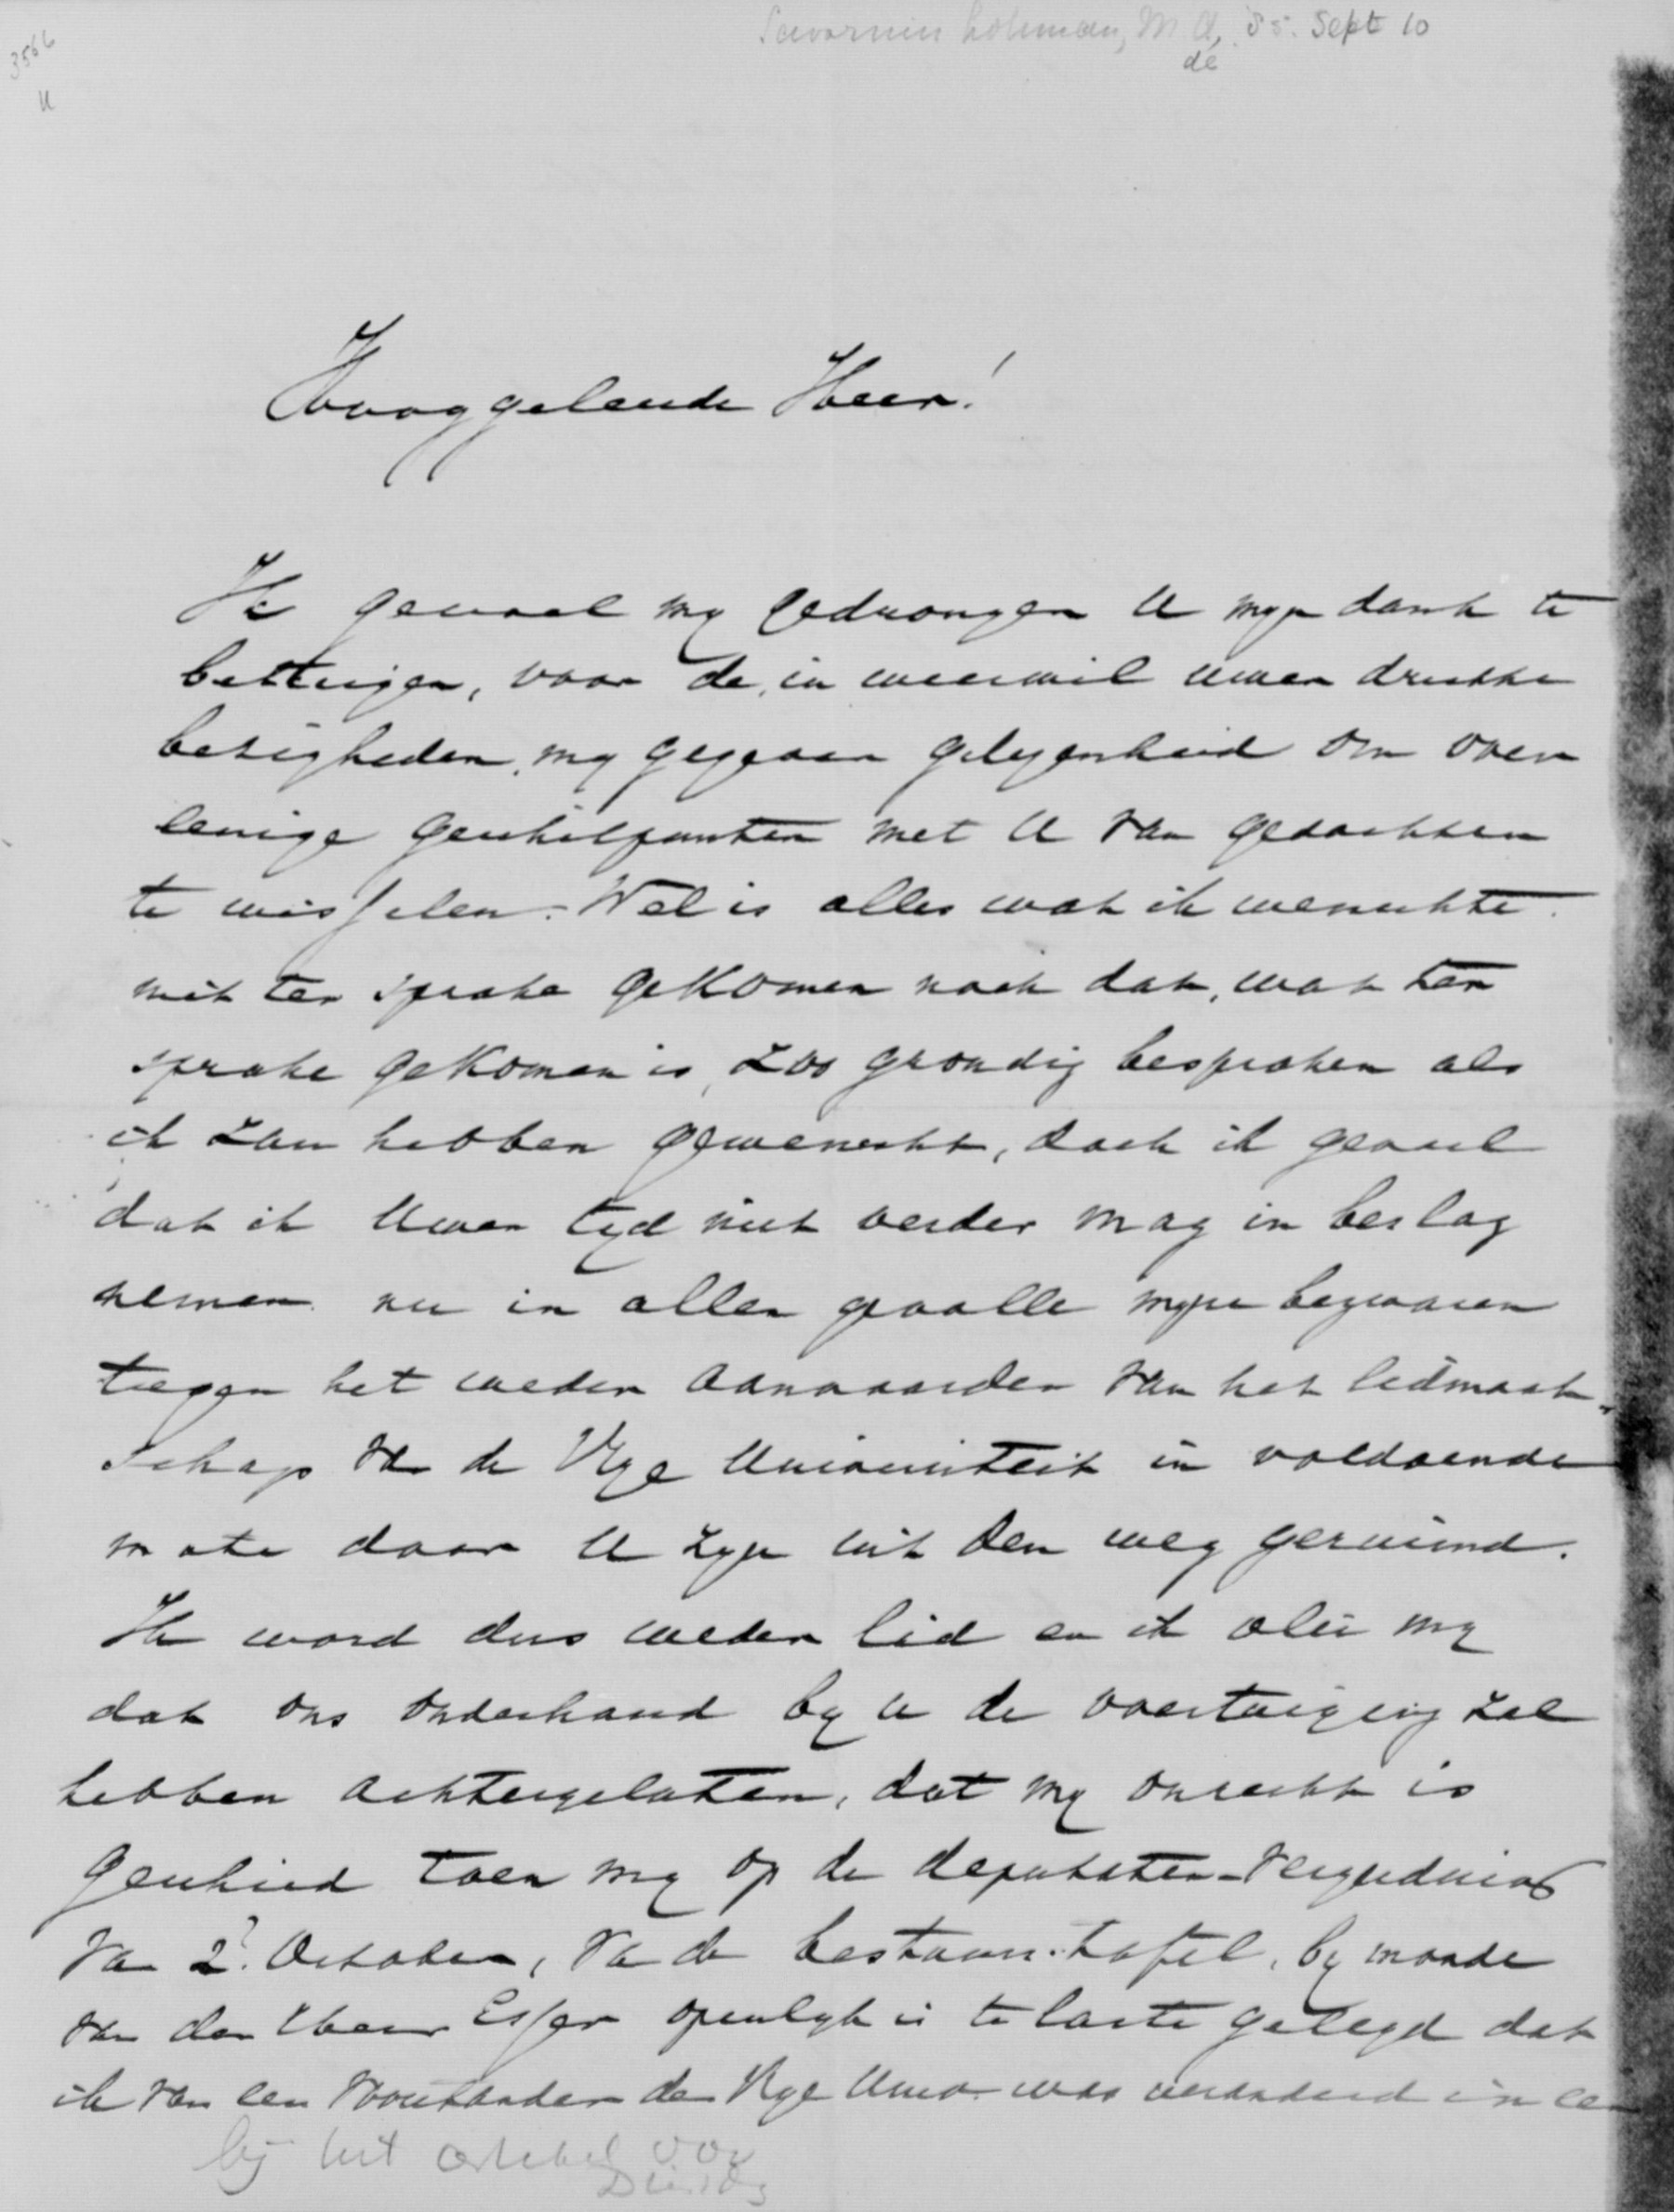 Savornin Lohman, M A, 85. Sept 10
de
3566
U
Hooggeleerde Heer!
Ik gevoel my gedrongen U myn dank te
betuigen, voor de, in weerwil uwer drukke
bezigheden, my gegeven gelegenheid om over
eenige geschilpunten met U van gedachten
te wisselen. Wel is alles wat ik wenschte
niet ter sprake gekomen noch dat, wat ter
sprake gekomen is, zoo grondig besproken als
ik zou hebben gewenscht, doch ik gevoel
dat ik Uwen tyd niet verder mag in beslag
nemen nu in allen gevalle myne bezwaren
tegen het weder aanvaarden van het lidmaat-
schap van de Vrye Universiteit in voldoende
mate door U zyn uit den weg geruimd.
Ik word dus weder lid en ik vlei my
dat ons onderhoud by U de overtuiging zal
hebben achtergelaten, dat my onrecht is
geschied toen my op de deputaten-vergadering
van 2. October, van de bestuurstafel, by monde
van den Heer Esser openlyk is te laste gelegd dat
ik van een voorstander der Vrye Univ. was veranderd in een
bij het artikel van
Dinsdag